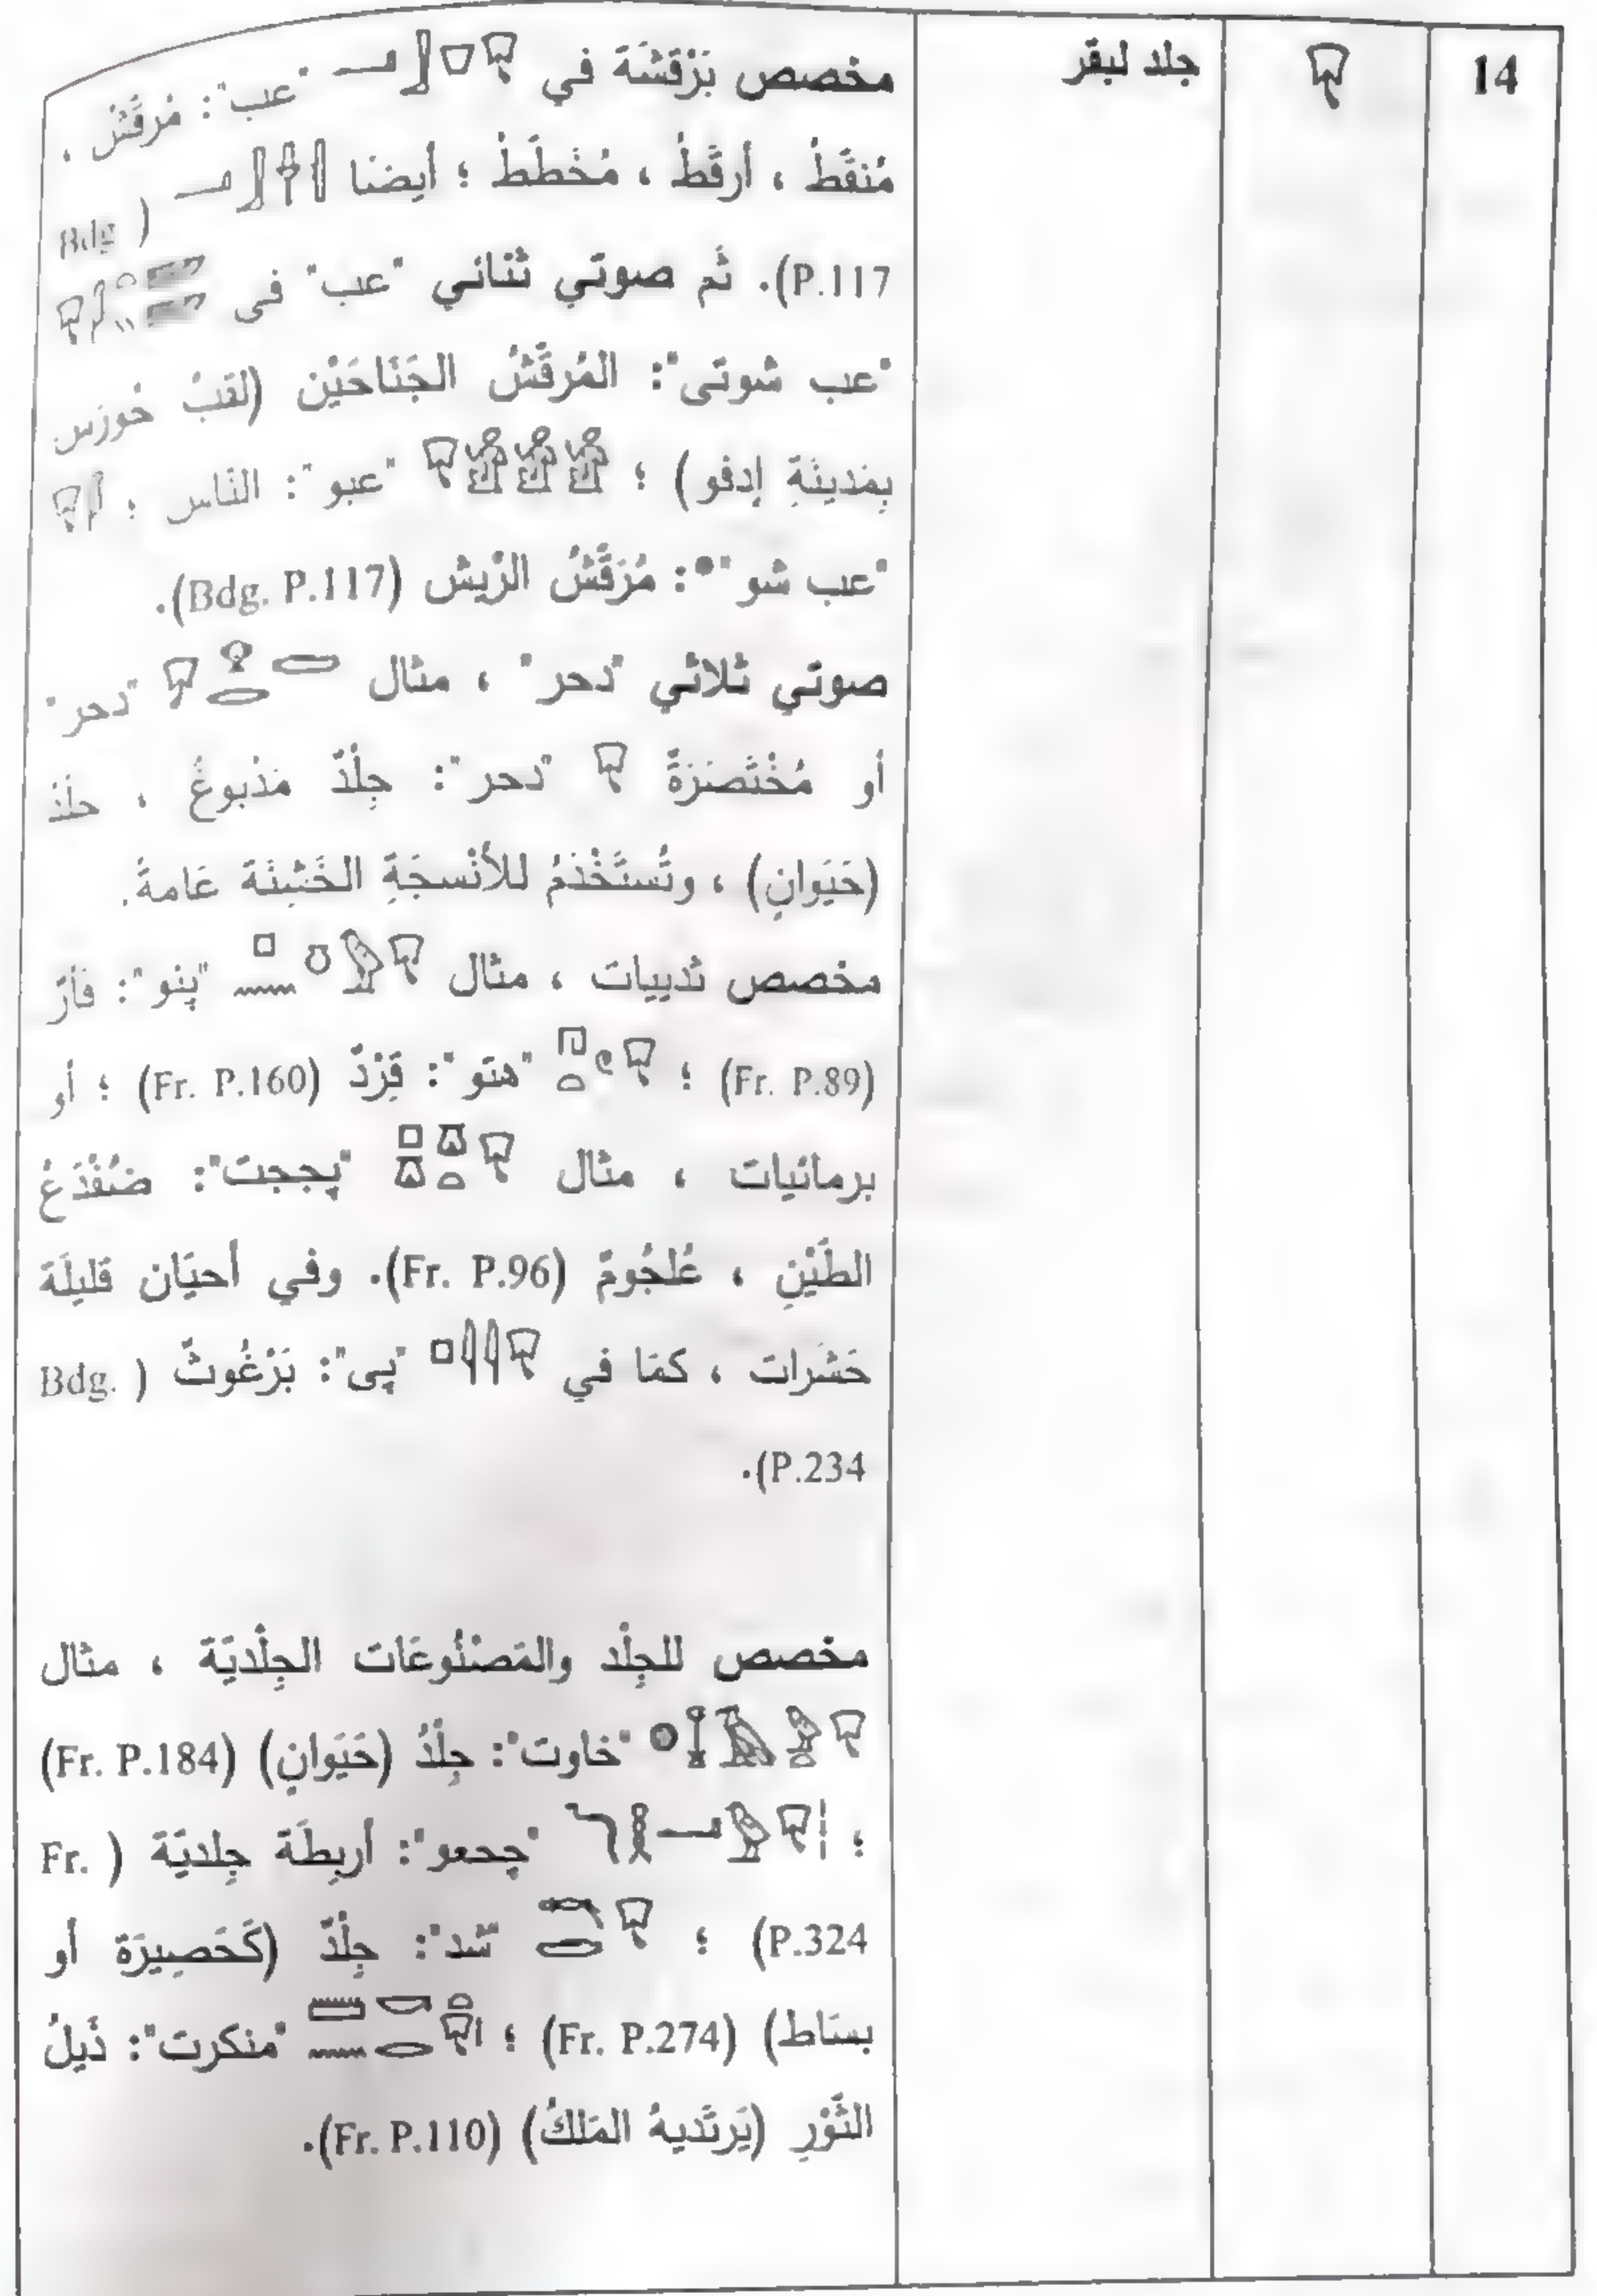 14 𓄛 جلد لبقر
مخصص بَرْقَشَة في 𓂝𓃀𓎺𓄛 "عب": مُرقَّش ،
مُنقَّطُ ، أرقَّطُ ، مُخَطَطُ ؛ أيضنا ( Bdg
P.117). ثَم صوتي ثنائي "عب" في
"عب شوتى": المُرقَّشُ الجَنَاحَيْن (لقبُ حُورَس
بِمَدينَةِ إدفو) ؛ "عبو": النَّاس ؛
"عب شو"•: مُرَقَّشُ الرِّيش (Bdg. P.117).
صوتي ثلاثي "دحر" ، مثال 𓂧𓄑𓂋𓄛 "دحر"
أو مُخْتَصَرَةً 𓄛 "دحر": جِلْدٌ مَدْبوغٌ ،
(حَيَوانٍ) ، وتُستَّخْدَمُ للأنْسجَةِ الخَشِنَة عَامةً.
مخصص ثدييات ، مثال 𓊪𓈖𓏌𓅱𓄛 "پنو": فأرٌ
(Fr. P.89) ؛ 𓉔𓏏𓏲𓄛 "هتو": قِرْدٌ (Fr. P.160) ؛ أو
برمائيات ، مثال 𓊪𓎼𓎼𓏏𓄛 "پججت": ضُفْدَعُ
الطَيْنِ ، عُلجُومٌ (Fr. P.96). وفي أحيَان قليلَة
حَشَرات ، كمَا في 𓊪𓇋𓇋𓄛 "پى": بَرْغُوثٌ ( Bdg.
P.234).
مخصص للجِلْد والمَصْنُوعَات الجِلْديَة ، مثال
"خاوت": جِلْدُ (حَيَوانٍ) (Fr. P.184)
؛ "چحعو": أربِطَة جِلديَة ( Fr.
P.324) ؛ 𓄞𓂧𓄛 "شد": جِلْدٌ (كَحَصِيرَة أو
بسَاط) (Fr. P.274) ؛ "منكرت": ذَيلُ
الثَّوْرِ (يَرتَديهُ المَلكُ) (Fr. P.110).